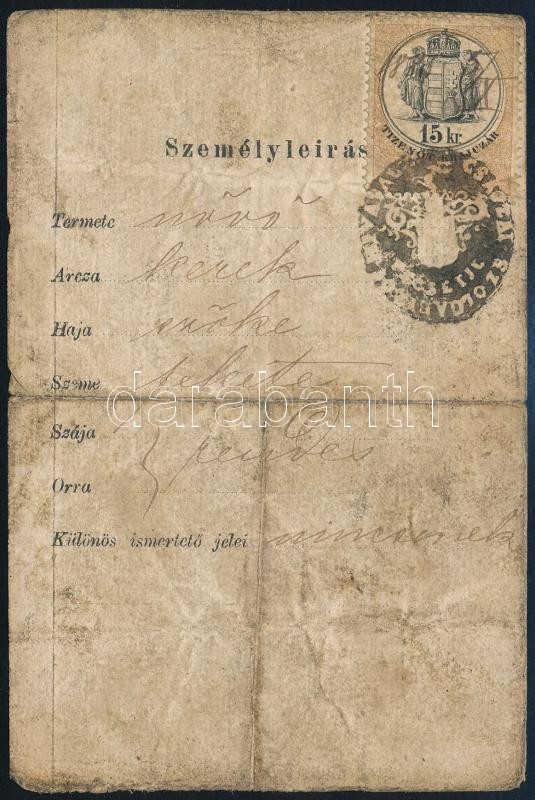 15 kr.
TIZENÖT KRAJCZÁR
Személyleirás
Termete növö
Arcza kerek
Haja szőke
Szeme fekete
darabanth
Szája } rendes
Orra
Különös ismertető jelei nincsenek